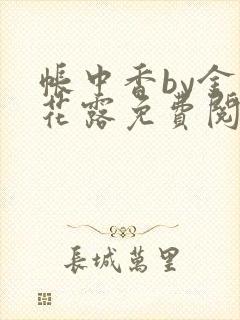 帳中香by金
花露免費閱
長城萬里